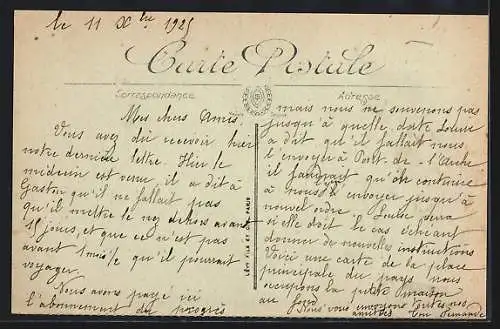 le 11 Xbre 1925
Carte Postale
Correspondance
Adresse
Mes chers Amis
Vous avez dû recevoir hier
notre dernière lettre. Hier le
médecin est venu il a dit à
Gaston qu'il ne fallait pas
qu'il mettre le nez dehors avant
15 jours, et que ce n'est pas
avant 1 mois 1/2 qu'il pourrait
voyager.
Nous avons payé
l'abonnement du progrès
mais nous ne souvenons pas
jusqu'à quelle date Louise
a dit qu'il fallait nous
l'envoyer à Pont-de-l'Arche
il faudrait qu'on continue
à nous l'envoyer jusqu'à
nouvel ordre. Louise sera
si elle doit le cas échéant
donner de nouvelles instructions
Voici une carte de la place
principale du pays nous
occupons la petite maison
au fond
Nous vous envoyons toutes nos
amitiés
LÉVY FILS ET CIE PARIS